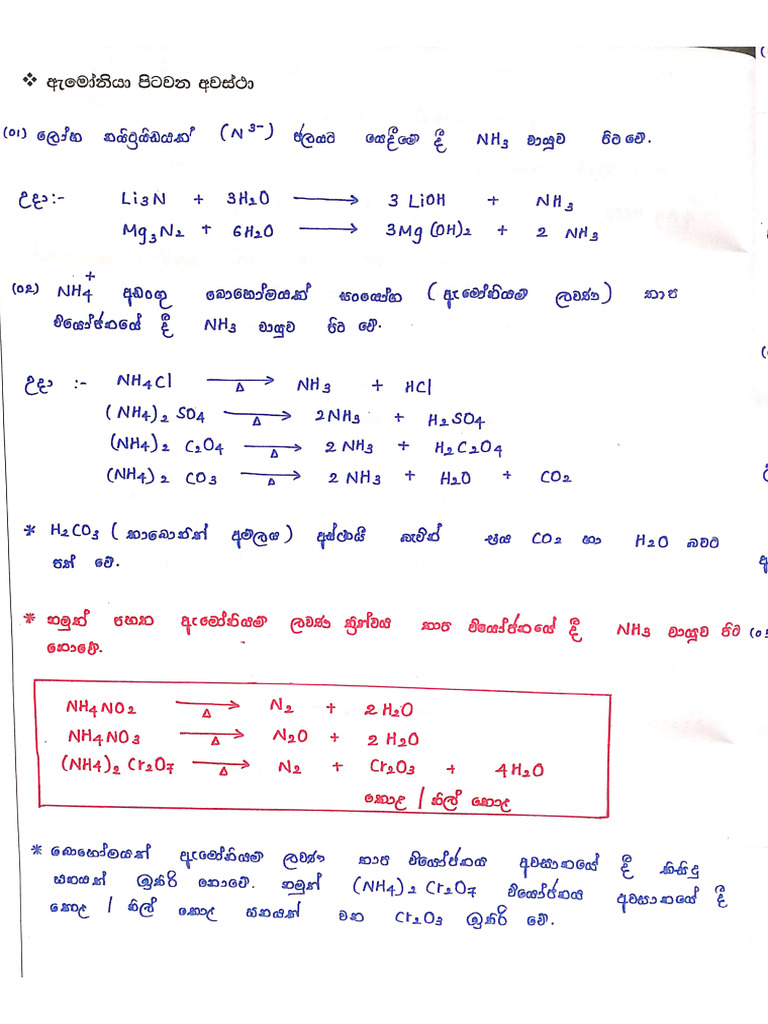 ❖ ඇමෝනියා පිටවන අවස්ථා
(01) ලෝහ නයිට්‍රයිඩයක් (N³⁻) ජලයට යෙදීමේ දී NH₃ වායුව පිටවේ.
උදා:- Li₃N + 3H₂O ⟶ 3 LiOH + NH₃
Mg₃N₂ + 6H₂O ⟶ 3Mg(OH)₂ + 2 NH₃
(02) NH₄⁺ අඩංගු බොහෝමයක් සංයෝග (ඇමෝනියම් ලවණ) තාප
වියෝජනයේ දී NH₃ වායුව පිට වේ.
උදා :- NH₄Cl ⟶Δ NH₃ + HCl
(NH₄)₂ SO₄ ⟶Δ 2NH₃ + H₂SO₄
(NH₄)₂ C₂O₄ ⟶Δ 2 NH₃ + H₂C₂O₄
(NH₄)₂ CO₃ ⟶Δ 2 NH₃ + H₂O + CO₂
* H₂CO₃ (කාබොනික් අම්ලය) අස්ථායී බැවින් එය CO₂ හා H₂O බවට
පත් වේ.
* නමුත් පහත ඇමෝනියම් ලවණ ත්‍රිත්වය තාප වියෝජනයේ දී NH₃ වායුව පිට
නොවේ.
NH₄NO₂ ⟶Δ N₂ + 2 H₂O
NH₄NO₃ ⟶Δ N₂O + 2 H₂O
(NH₄)₂ Cr₂O₇ ⟶Δ N₂ + Cr₂O₃ + 4H₂O
කොළ / නිල් කොළ
* බොහෝමයක් ඇමෝනියම් ලවණ තාප වියෝජනය අවසානයේ දී කිසිදු
ඝනයක් ඉතිරි නොවේ. නමුත් (NH₄)₂ Cr₂O₇ වියෝජනය අවසානයේ දී
කොළ / නිල් කොළ ඝනයක් වන Cr₂O₃ ඉතිරි වේ.